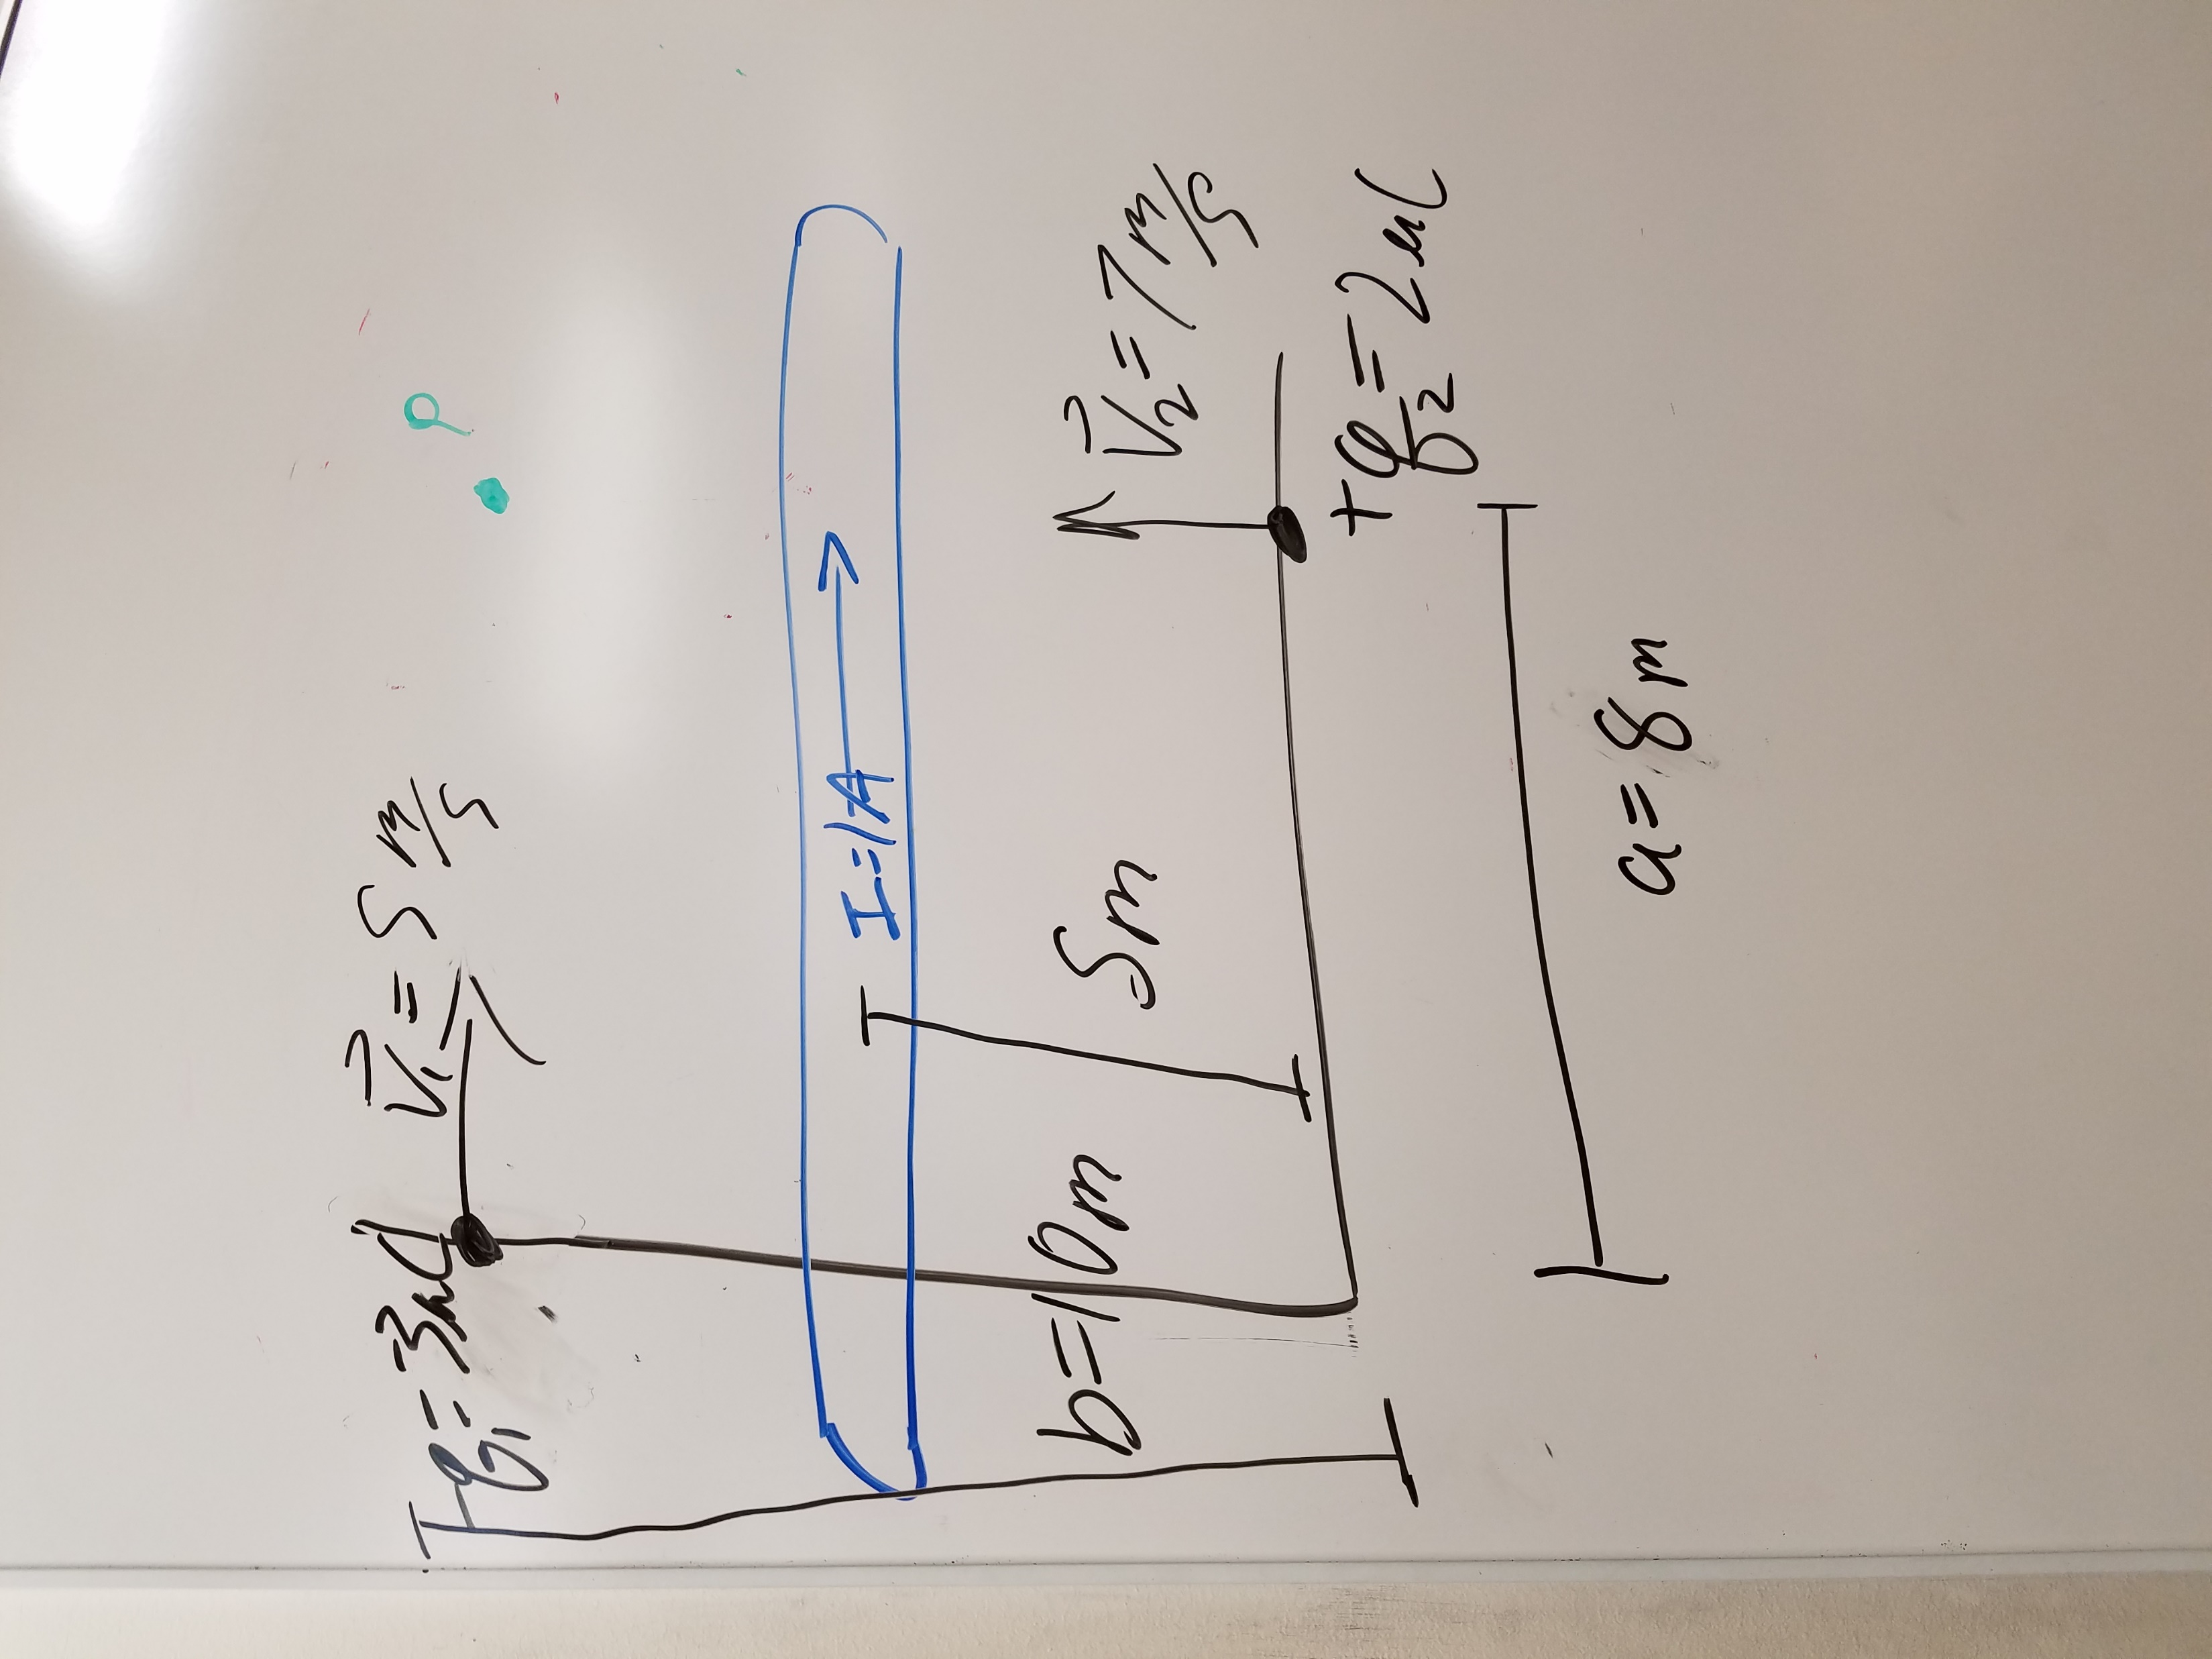 +q₁ = 3μC
V⃗₁ = 5 m/s
I = 1A
b = 10 m
5m
V⃗₂ = 7 m/s
+q₂ = 2 μC
a = 8 m